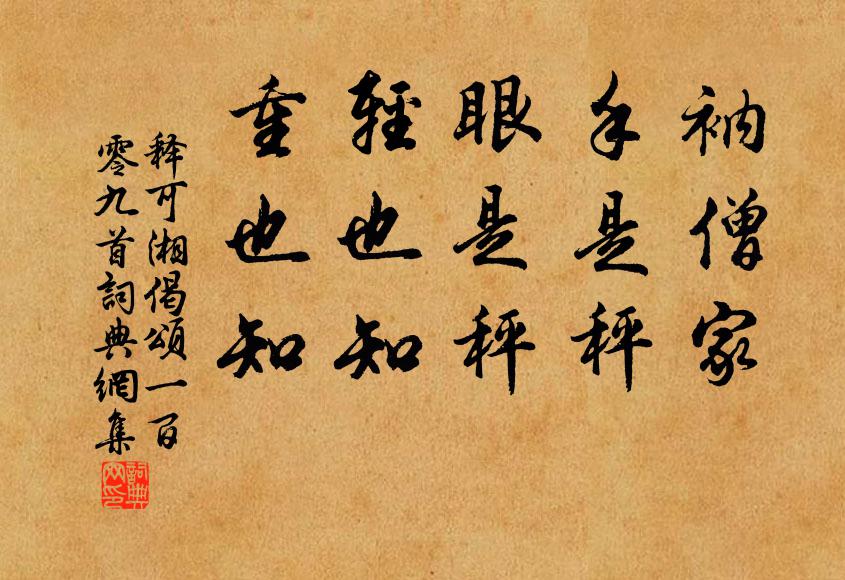 衲僧家
手是秤
眼是秤
輕也知
重也知
释可湘偈頌一百
零九首詞典網集
詞典
网印